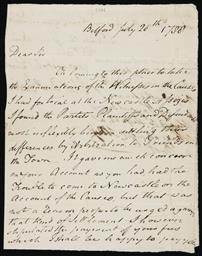 Belford July 20th 1798
Dear Sir
On coming to this place to take
the Examinations of the Witnesses in the Cause
I had for trial at the Newcastle
I found the Parties Plaintiff and Defendant
most settling their
differences by Arbitration to Friends in
the Town. It gave me much concern
on your Account as you had had the
trouble to come to Newcastle on the
Account of the Cause, but that was
not a reason proper to be urged against
that kind of Settlement I however
stipulated for payment of your fees
which I shall be happy to pay you